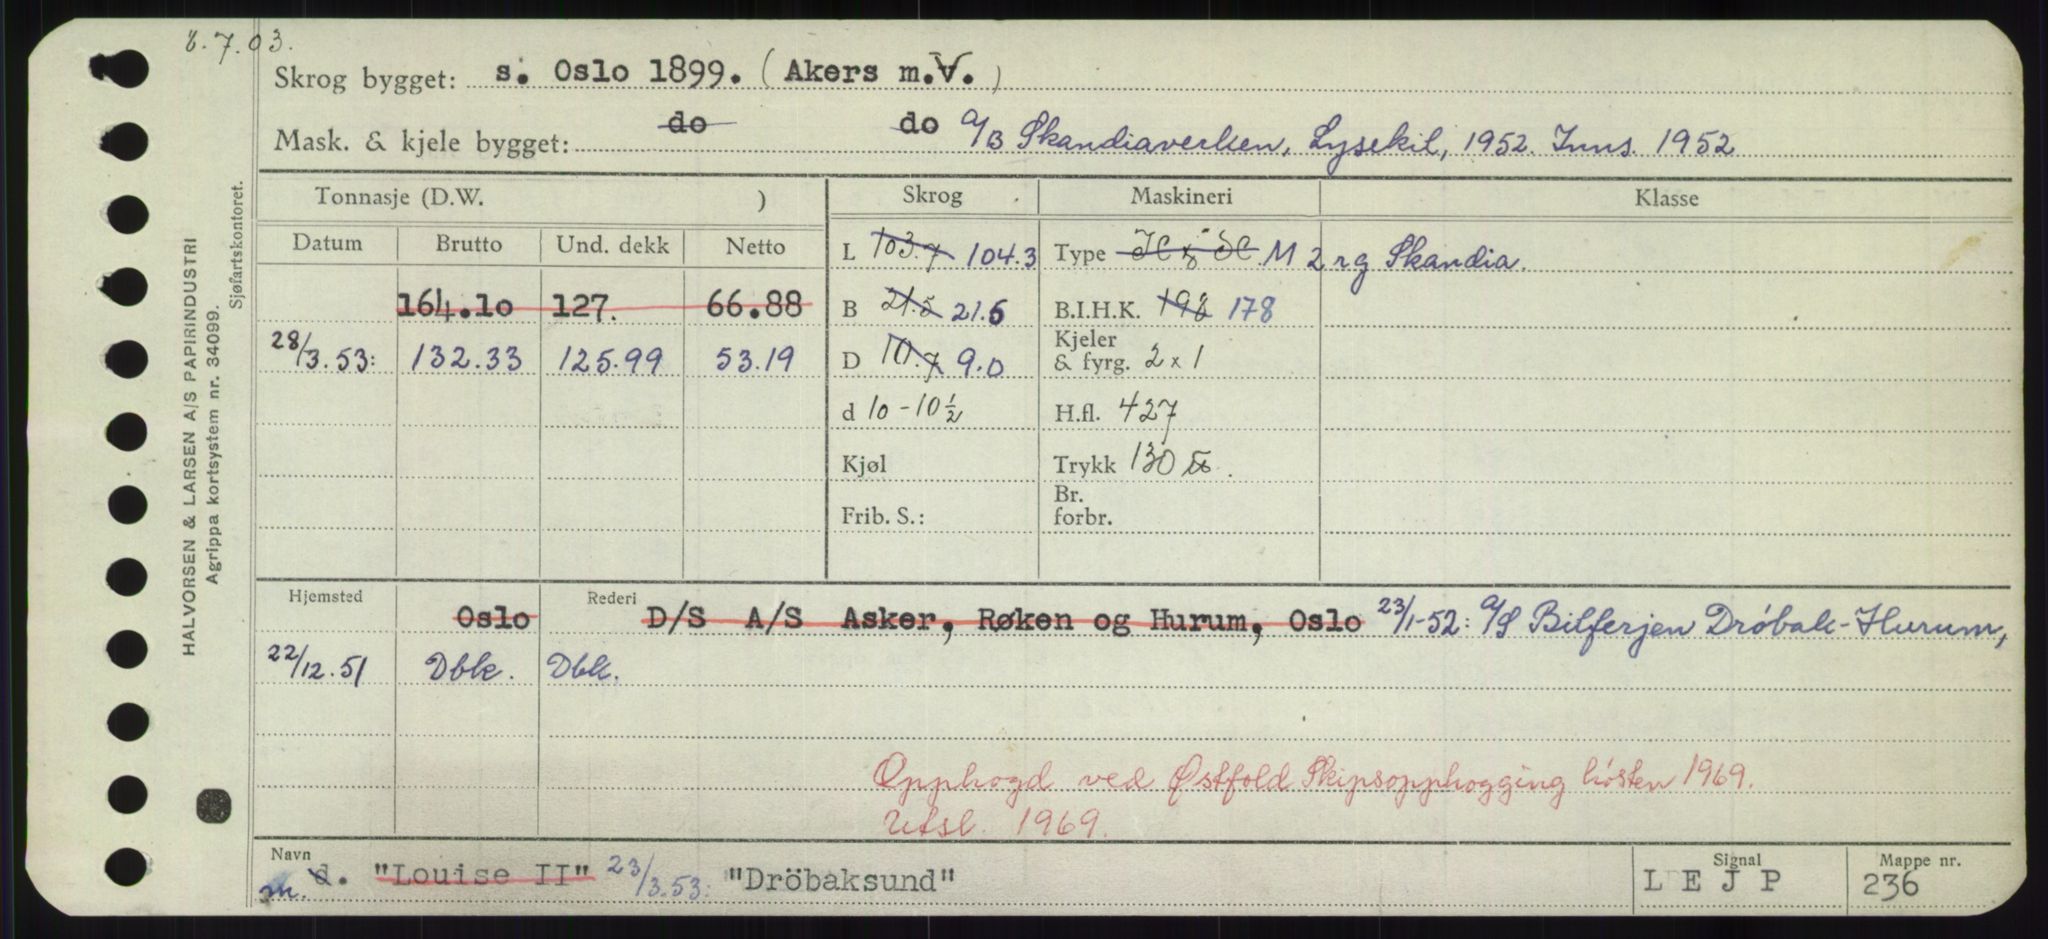 8.7.03.
Skrog bygget: s. Oslo 1899. (Akers m.V.)
Mask. & kjele bygget: do do A/B Skandiaverken, Lysekil, 1952. Inns. 1952
Tonnasje (D.W. ) Skrog Maskineri Klasse
Datum Brutto Und. dekk Netto L 103.7 104.3 Type M 2 rg Skandia.
164.10 127. 66.88 B 21.5 21.6 B.I.H.K. 198 178
28/3.53: 132.33 125.99 53.19 D 10.7 9.0 Kjeler & fyrg. 2 x 1
d 10-10½ H.fl. 427
Kjøl Trykk 130 ℔.
Frib. S.: Br. forbr.
Hjemsted Oslo Rederi D/S A/S Asker, Røken og Hurum, Oslo 23/1-52: A/S Bilferjen Dröbak-Hurum,
22/12.51 Dbk. Dbk.
Opphogd ved Østfold Skipsopphogging hösten 1969.
Utsl. 1969.
Navn Signal Mappe nr.
m. d. "Louise II" 23/3.53: "Dröbaksund" L E J P 236
HALVORSEN & LARSEN A/S PAPIRINDUSTRI
Agrippa kortsystem nr. 34099.
Sjøfartskontoret.